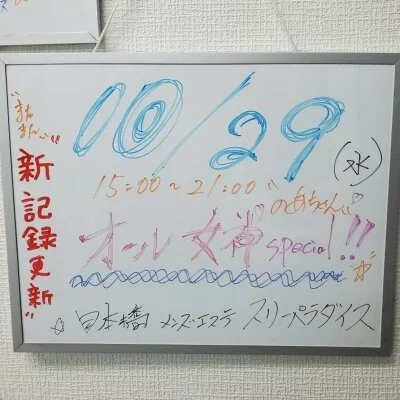 10/29
(水)
"またまた"
"新記録更新"
15:00〜21:00
のあちゃん
オール女神special!!
が
☆日本橋 メンズエステ スリーパラダイス